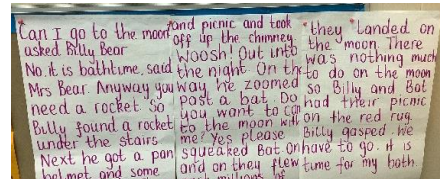 Can I go to the moon
asked Billy Bear
No. it is bathtime, said
Mrs Bear. Anyway you
need a rocket. So
Billy found a rocket
under the stairs
Next he got a pan
helmet and some
and picnic and took
off up the chimney
Woosh! Out into
the night. On the
way he zoomed
past a bat. Do
you want to
to the moon with
me? Yes please
squeaked Bat. on
and on they flew
millions of
they landed on
the moon. There
was nothing much
to do on the moon
so Billy and Bat
had their picnic
on the red rug.
Billy gasped. We
have to go. it is
time for my bath.